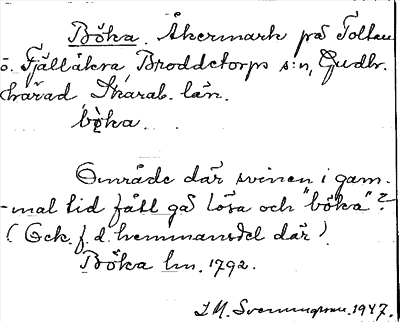 Böka. Åkermark på Toltan
ö. Fjällåkra Broddetorps s:n, Gudhr.
härad Skarab. län.
böka.
Område där svinen i gam-
-mal tid fått gå lösa och "böka"?
(Eck. f. d. hemmansdel där)
Böka lm. 1792.
I M. Svenningsson. 1947.